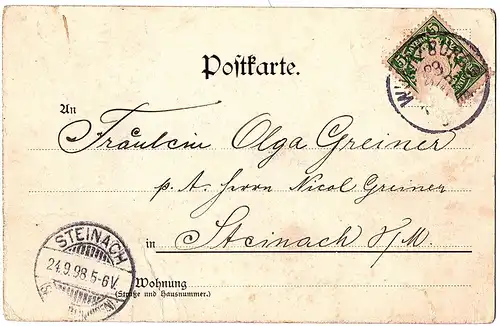 Postkarte.
An
Fräulein Olga Greiner
p. A. Herrn Nicol Greiner
in Steinach S/M.
Wohnung
(Straße und Hausnummer.)
STEINACH
24.9.98.5-6V.
5 5